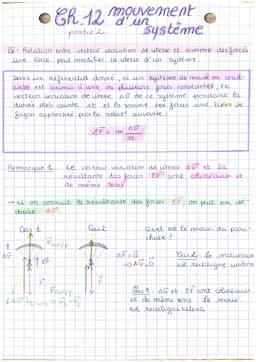 Ch.12 mouvement
d'un
partie 2 système
Relation entre vecteur variation de vitesse et somme des forces
Une force peut modifier la vitesse d'un système.
Dans un référentiel donné, si un système de masse m const-
ante est soumis à une ou plusieurs forces constantes, le
vecteur variation de vitesse ΔV de ce système pendant la
durée Δt et la somme des forces sont liées de
façon approchée par la relat° suivante :
ΣF = m ΔV
Δt
Remarque 1. Le vecteur variation de vitesse ΔV et la
résultante des forces ΣF sont colinéaires et
de même sens
→ si on connaît la résultante des forces ΣF, on peut en dé-
duire ΔV.
Cas 1 Cas 2 Quel est le mouv. du para-
chute ?
Cas 2. Le mouvement
est rectiligne uniforme
Cas 1. ΔV et ΣF sont colinéaires
et de même sens. Le mouv.
est rectiligne